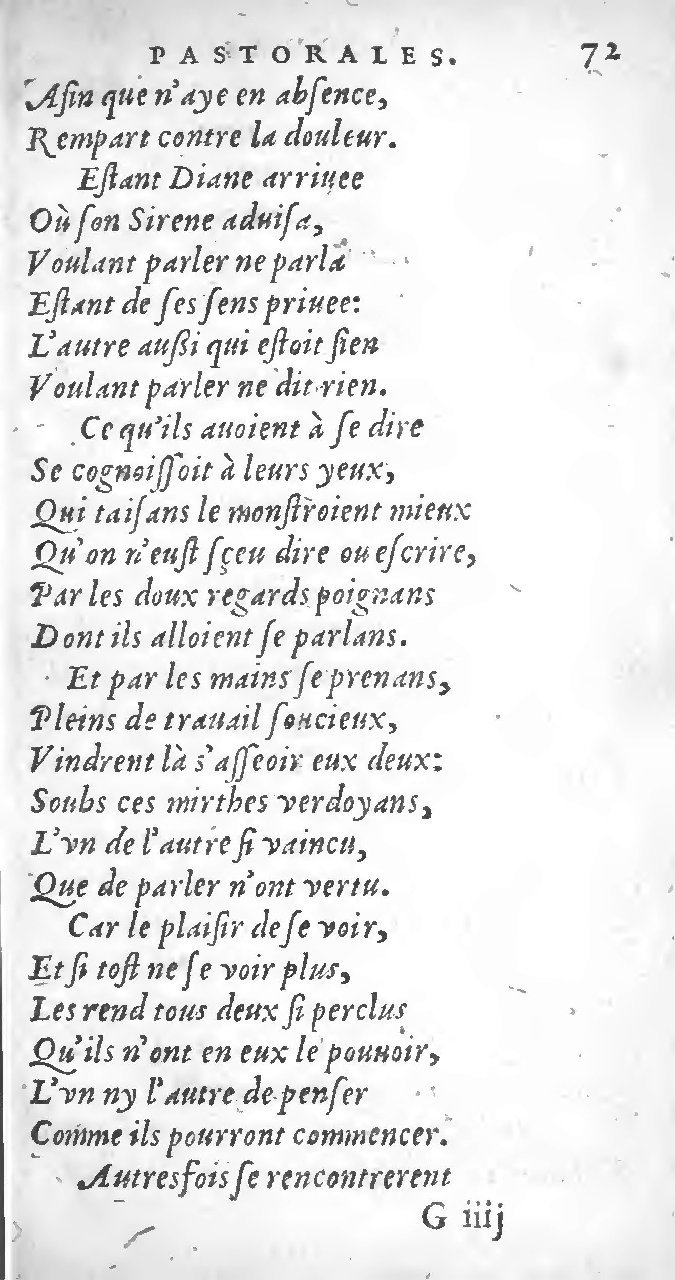 PASTORALES. 72
Afin que n'aye en absence,
Rempart contre la douleur.
Eſtant Diane arriuee
Où ſon Sirene aduiſa,
Voulant parler ne parla
Eſtant de ſes ſens priuee:
L'autre auſſi qui eſtoit ſien
Voulant parler ne dit rien.
Ce qu'ils auoient à ſe dire
Se cognoiſſoit à leurs yeux,
Qui taiſans le monſtroient mieux
Qu'on n'euſt ſçeu dire ou eſcrire,
Par les doux regards poignans
Dont ils alloient ſe parlans.
Et par les mains ſe prenans,
Pleins de trauail ſoucieux,
Vindrent là s'aſſeoir eux deux:
Soubs ces mirthes verdoyans,
L'vn de l'autre ſi vaincu,
Que de parler n'ont vertu.
Car le plaiſir de ſe voir,
Et ſi toſt ne ſe voir plus,
Les rend tous deux ſi perclus
Qu'ils n'ont en eux le pouuoir,
L'vn ny l'autre de penſer
Comme ils pourront commencer.
Autresfois ſe rencontrerent
G iiij